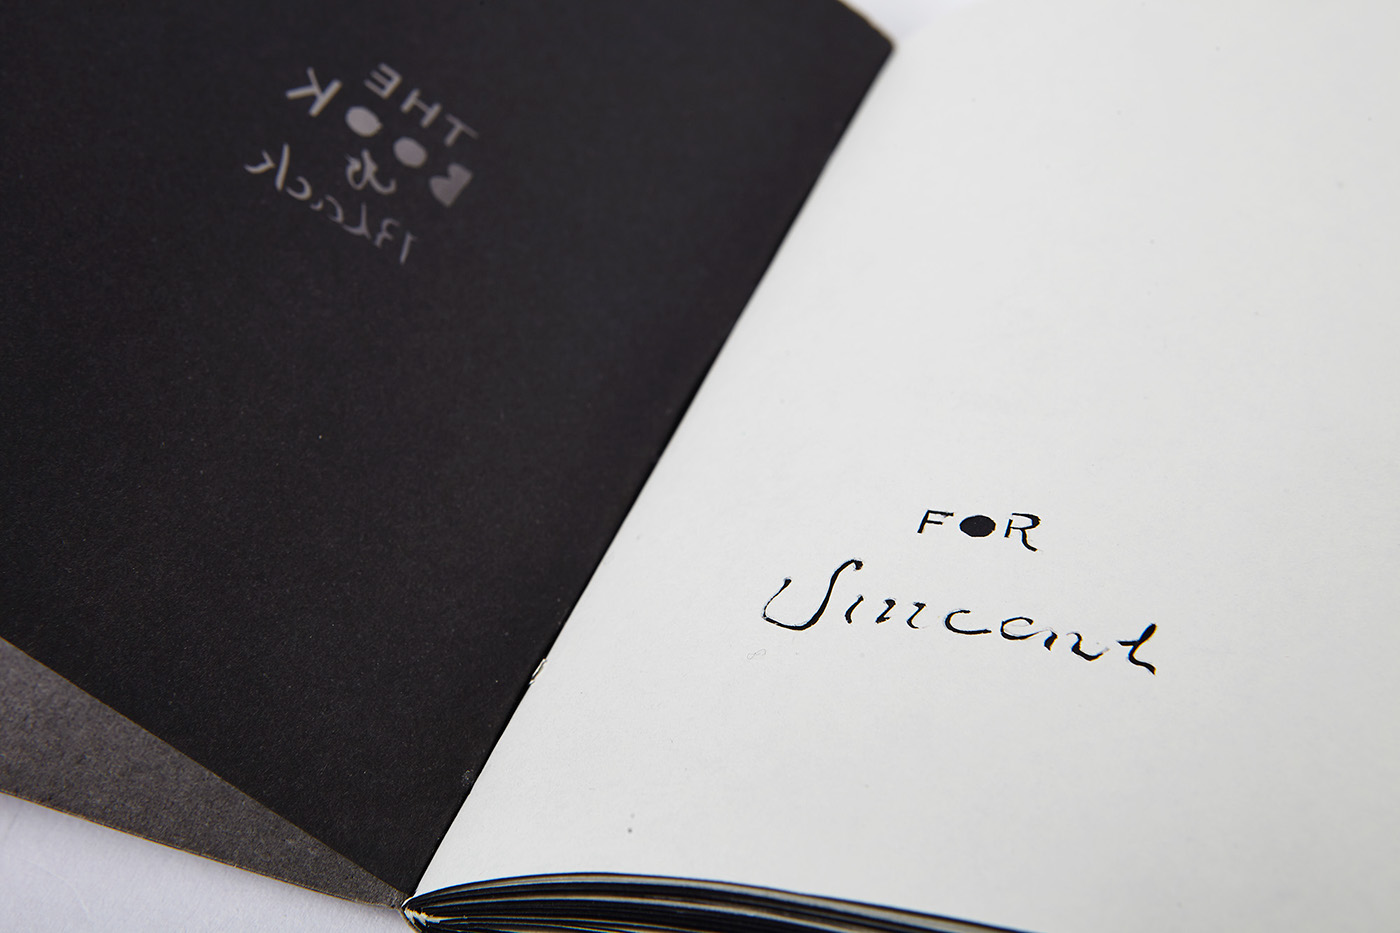 THE
BOOK
OF
Black
FOR
Vincent